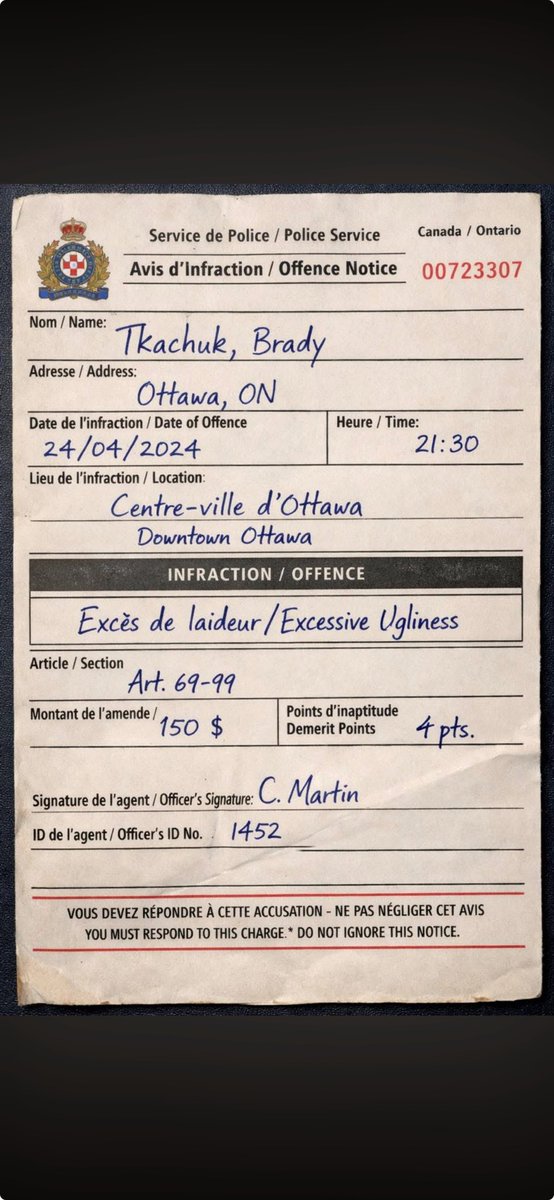 Service de Police / Police Service
Canada / Ontario
Avis d'Infraction / Offence Notice
00723307
Nom / Name: Tkachuk, Brady
Adresse / Address:
Ottawa, ON
Date de l'infraction / Date of Offence
Heure / Time:
24/04/2024
21:30
Lieu de l'infraction / Location:
Centre-ville d'Ottawa
Downtown Ottawa
INFRACTION / OFFENCE
Excès de laideur/Excessive Ugliness
Article / Section
Art. 69-99
Montant de l'amende / 150 $
Points d'inaptitude
Demerit Points 4 pts.
Signature de l'agent / Officer's Signature: C. Martin
ID de l'agent / Officer's ID No. 1452
VOUS DEVEZ RÉPONDRE À CETTE ACCUSATION - NE PAS NÉGLIGER CET AVIS
YOU MUST RESPOND TO THIS CHARGE.* DO NOT IGNORE THIS NOTICE.